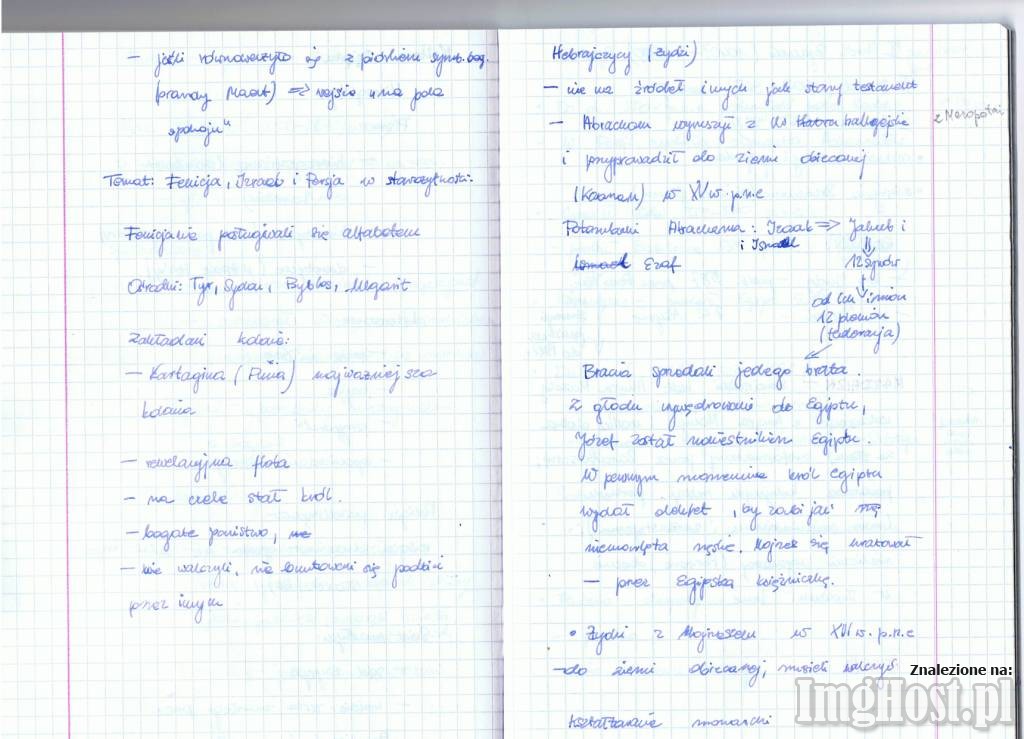 – jeśli równoważyło się z piórkiem symb. bog.
(prawdy Maat) => wejście "na pola
spokoju"
Temat: Fenicja, Izrael i Persja w starożytności.
Fenicjanie posługiwali się alfabetem
Ośrodki: Tyr, Sydon, Byblos, Megarit
Zakładani kolonie:
– Kartagina (Punia) najważniejsza
kolonia
– rewelacyjna flota
– na czele stał król.
– bogate państwo,
– nie walczyli, nie buntowani się podbici
przez innych
Hebrajczycy (Żydzi)
– nie ma źródeł innych jak stary testament
– Abracham wyruszył z Ur
z Mezopotami
i przyprowadził do ziemi obiecanej
(Kaanan) w XV w. p.n.e
Potomkowie Abrachama: Izaak => Jakub i
i Izmael
Ezaf
12 synów
od ich imion
12 plemion
(federacja)
Bracia sprzedali jednego brata.
Z głodu wywędrowanie do Egiptu,
Józef został namiestnikiem Egiptu.
W pewnym momencie król Egiptu
wydał dekret, by zabijać
niemowlęta męskie. Mojżesz się uratował
– przez Egipską księżniczkę.
• Żydzi z Mojżeszem w XIII w. p.n.e
– do ziemi obiecanej, musieli walczyć
Kształtowanie monarchi
Znalezione na:
ImgHost.pl